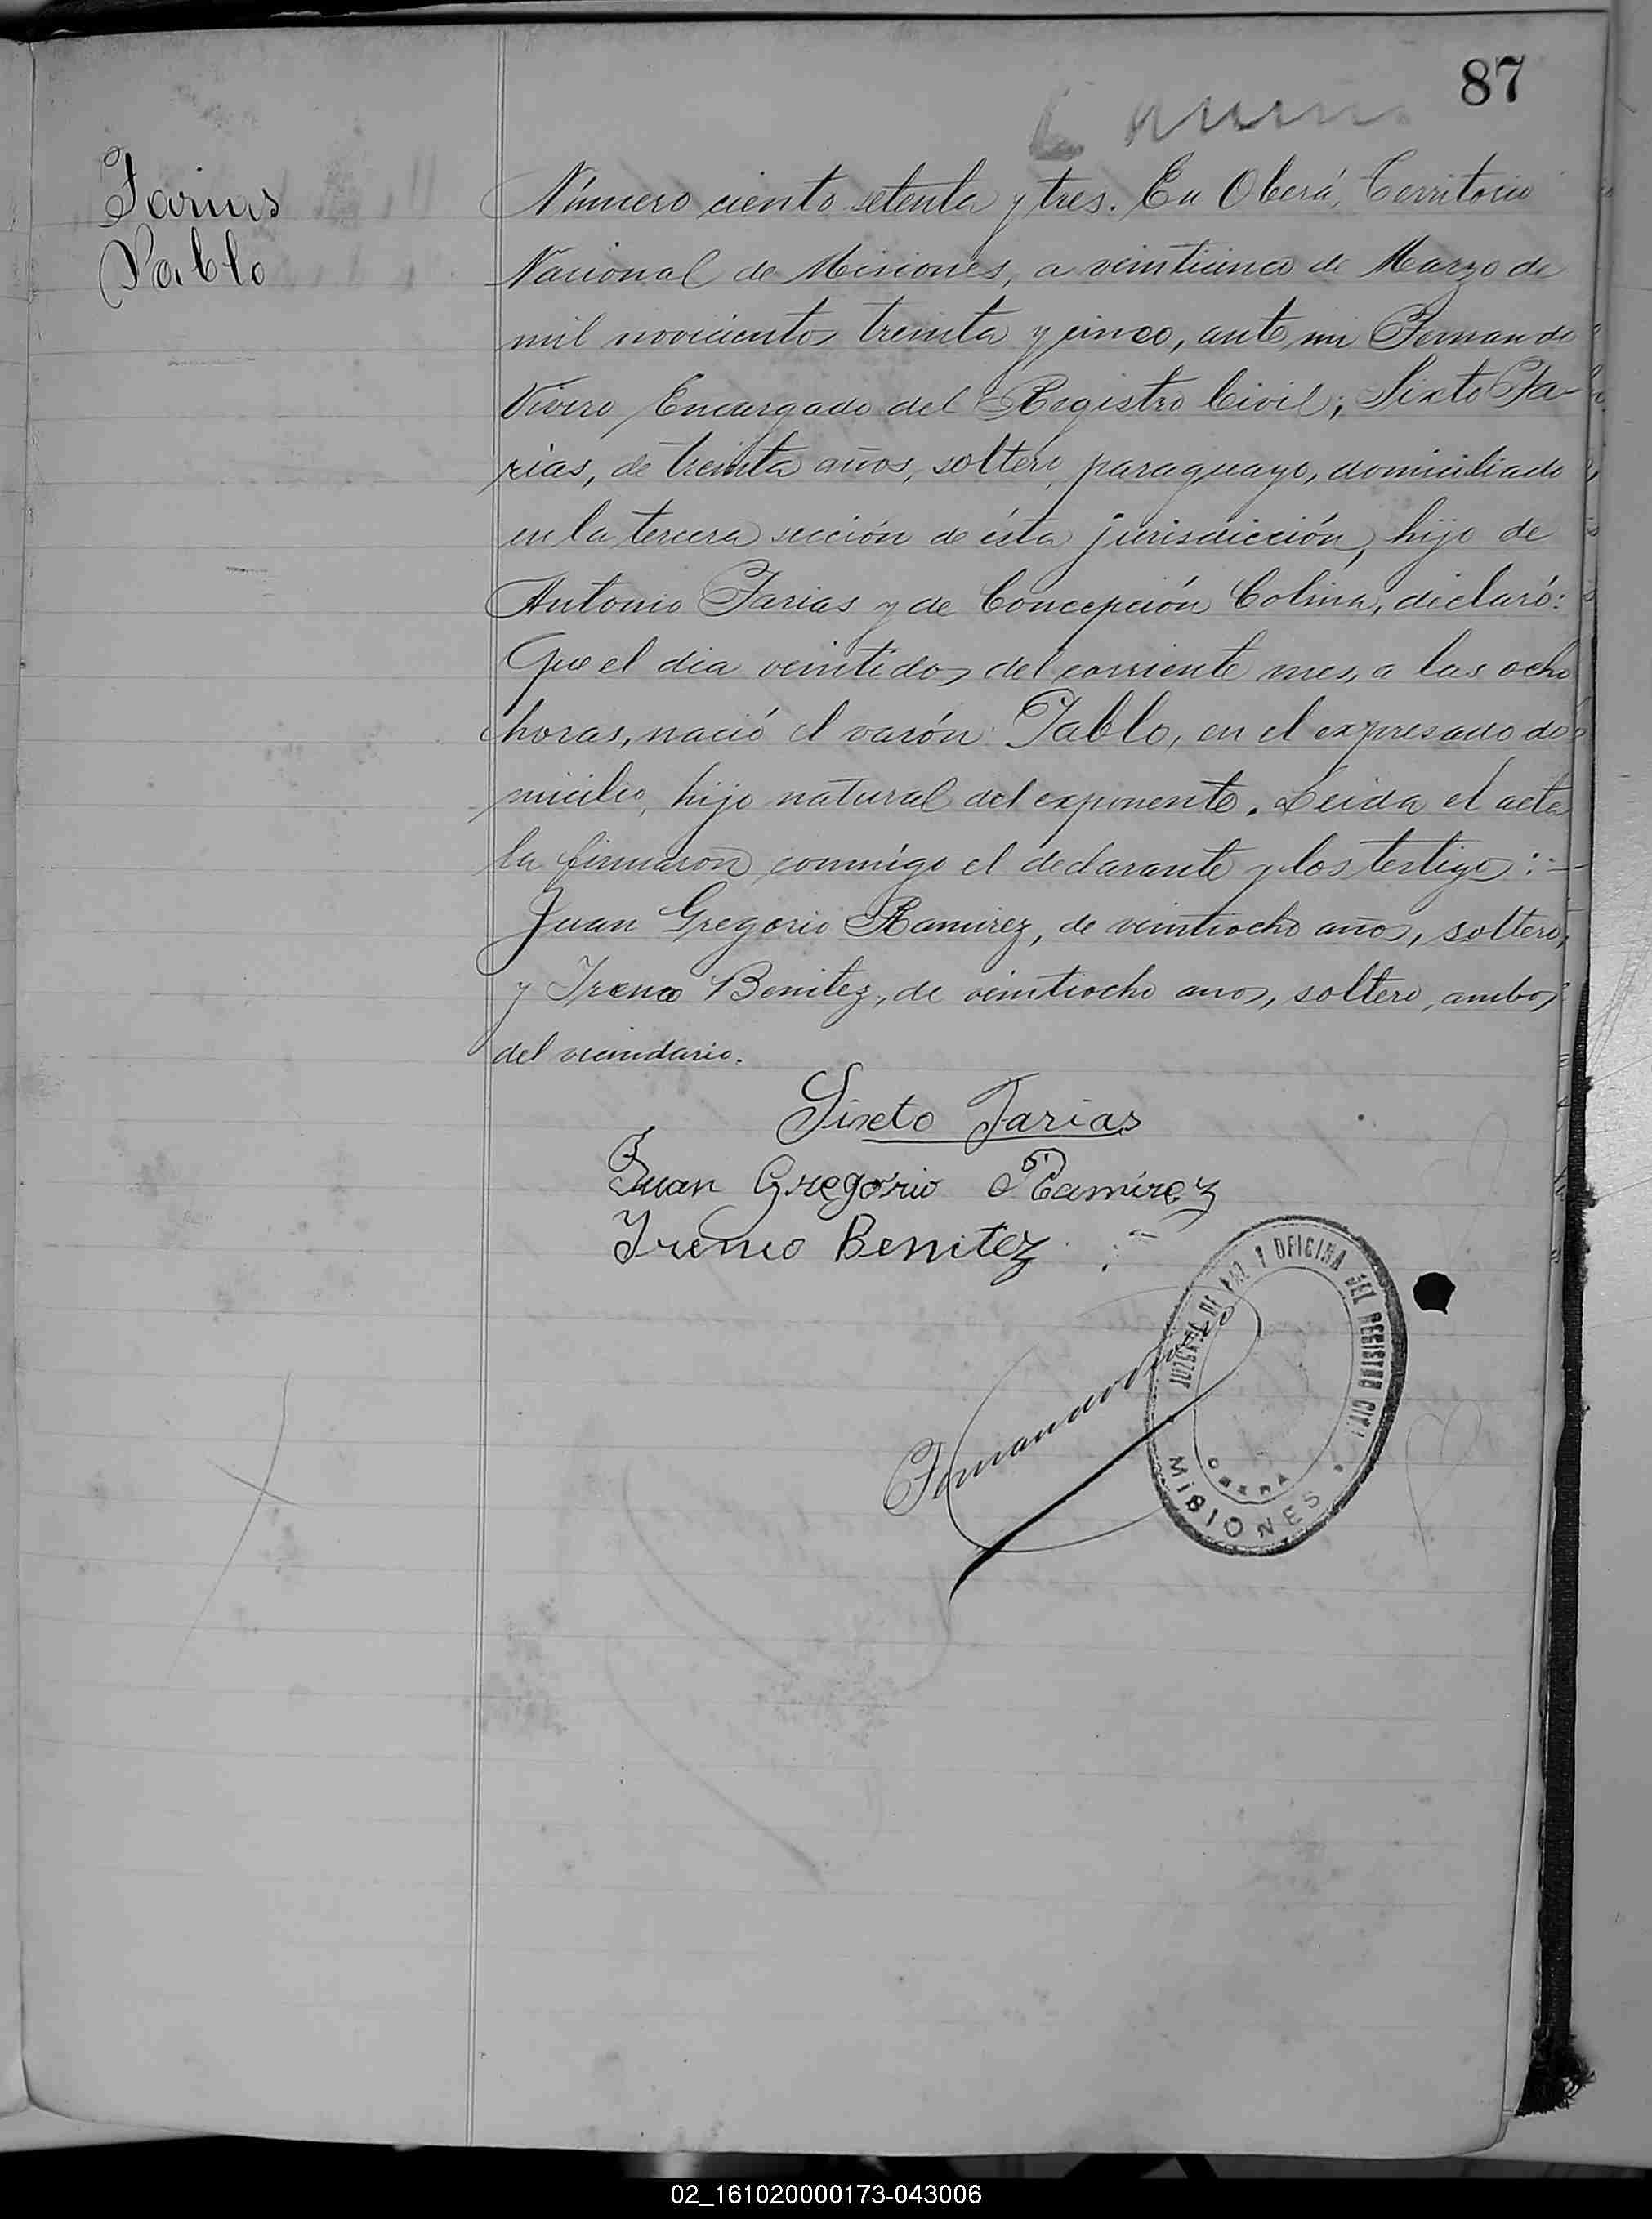 87
Farias
Pablo
Número ciento setenta y tres. En Oberá, Territorio
Nacional de Misiones, a veinticinco de Marzo de
mil novecientos treinta y cinco, ante mi Fernando
Vivero Encargado del Registro Civil; Sixto Fa-
rias, de treinta años, soltero, paraguayo, domiciliado
en la tercera sección de ésta jurisdicción, hijo de
Antonio Farias y de Concepción Colina, declaró:
Que el dia veintidos del corriente mes, a las ocho
horas, nació el varón Pablo, en el expresado do-
micilio, hijo natural del exponente. Leida el acta
la firmaron conmigo el declarante y los testigos:-
Juan Gregorio Ramirez, de veintiocho años, soltero,
y Ireneo Benitez, de veintiocho anos, soltero, ambos
del vecindario.
Sixto Farias
Juan Gregorio Ramirez
Ireneo Benitez
Fernando Vivero
JUZGADO DE PAZ Y OFICINA DEL REGISTRO CIVIL
OBERA
MISIONES
02_161020000173-043006